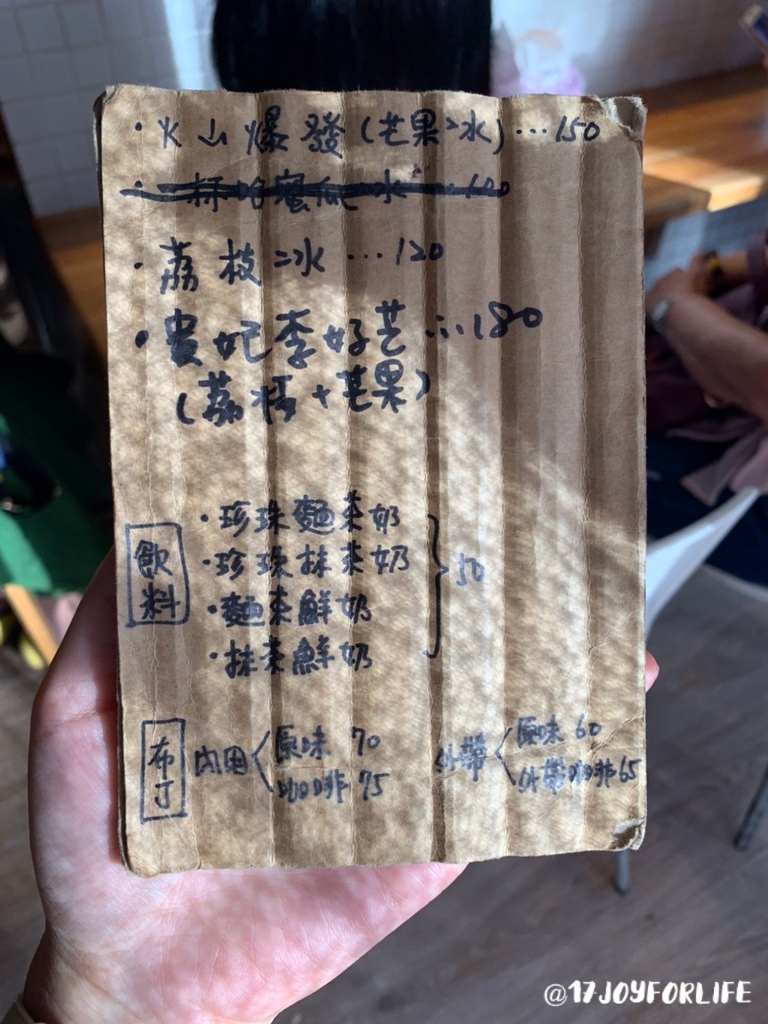 ·火山爆發(芒果冰)…150
·荔枝冰…120
·貴妃李好芒…180
(荔枝+芒果)
飲料
·珍珠麵茶奶
·珍珠抹茶奶
·麵茶鮮奶
·抹茶鮮奶
50
布丁
內用 原味 70
咖啡 75
外帶 原味 60
外帶咖啡 65
@17JOYFORLIFE